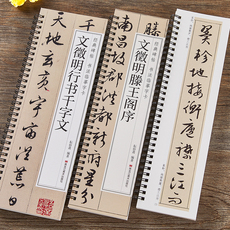 千
天地玄黄宇宙洪荒日
文徵明行书千字文
滕
南昌故郡洪都新府星分
文徵明滕王阁序
翼轸地接衡庐襟三江而